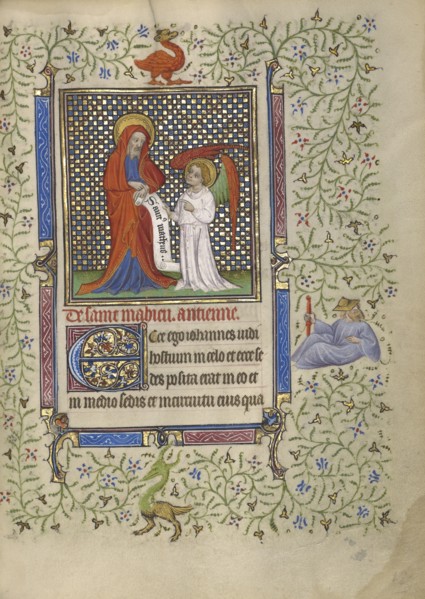 Saint mathieu
De saint mahieu. antienne.
Ecce ego iohannes uidi
hostium in celo et ecce se
des posita erat in eo et
in medio sedis et in circuitu eius qua